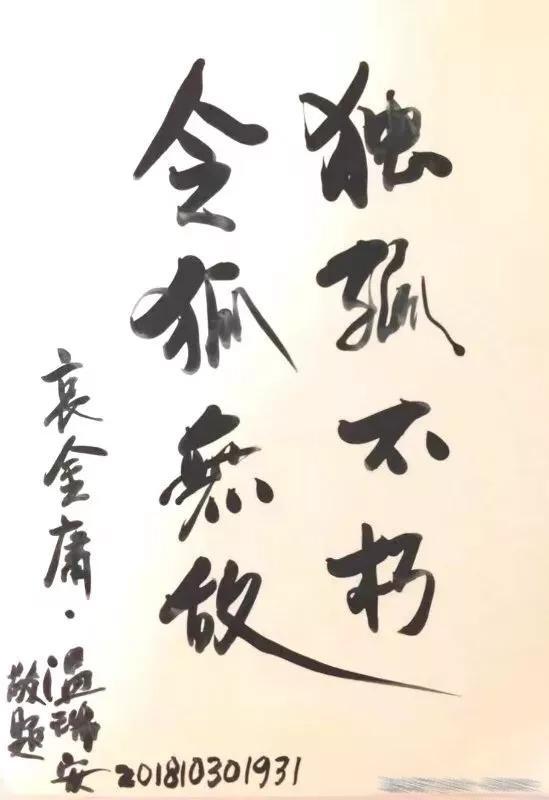 独孤不朽
令狐無敌
哀金庸·温瑞安
敬题
201810301931